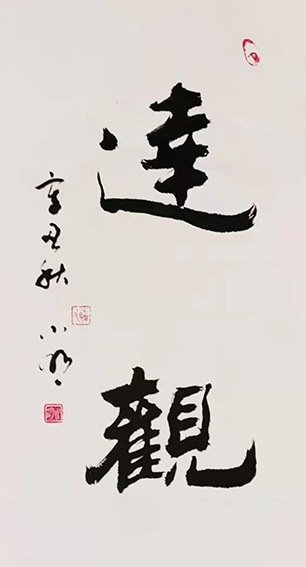 達觀
辛丑秋
小明